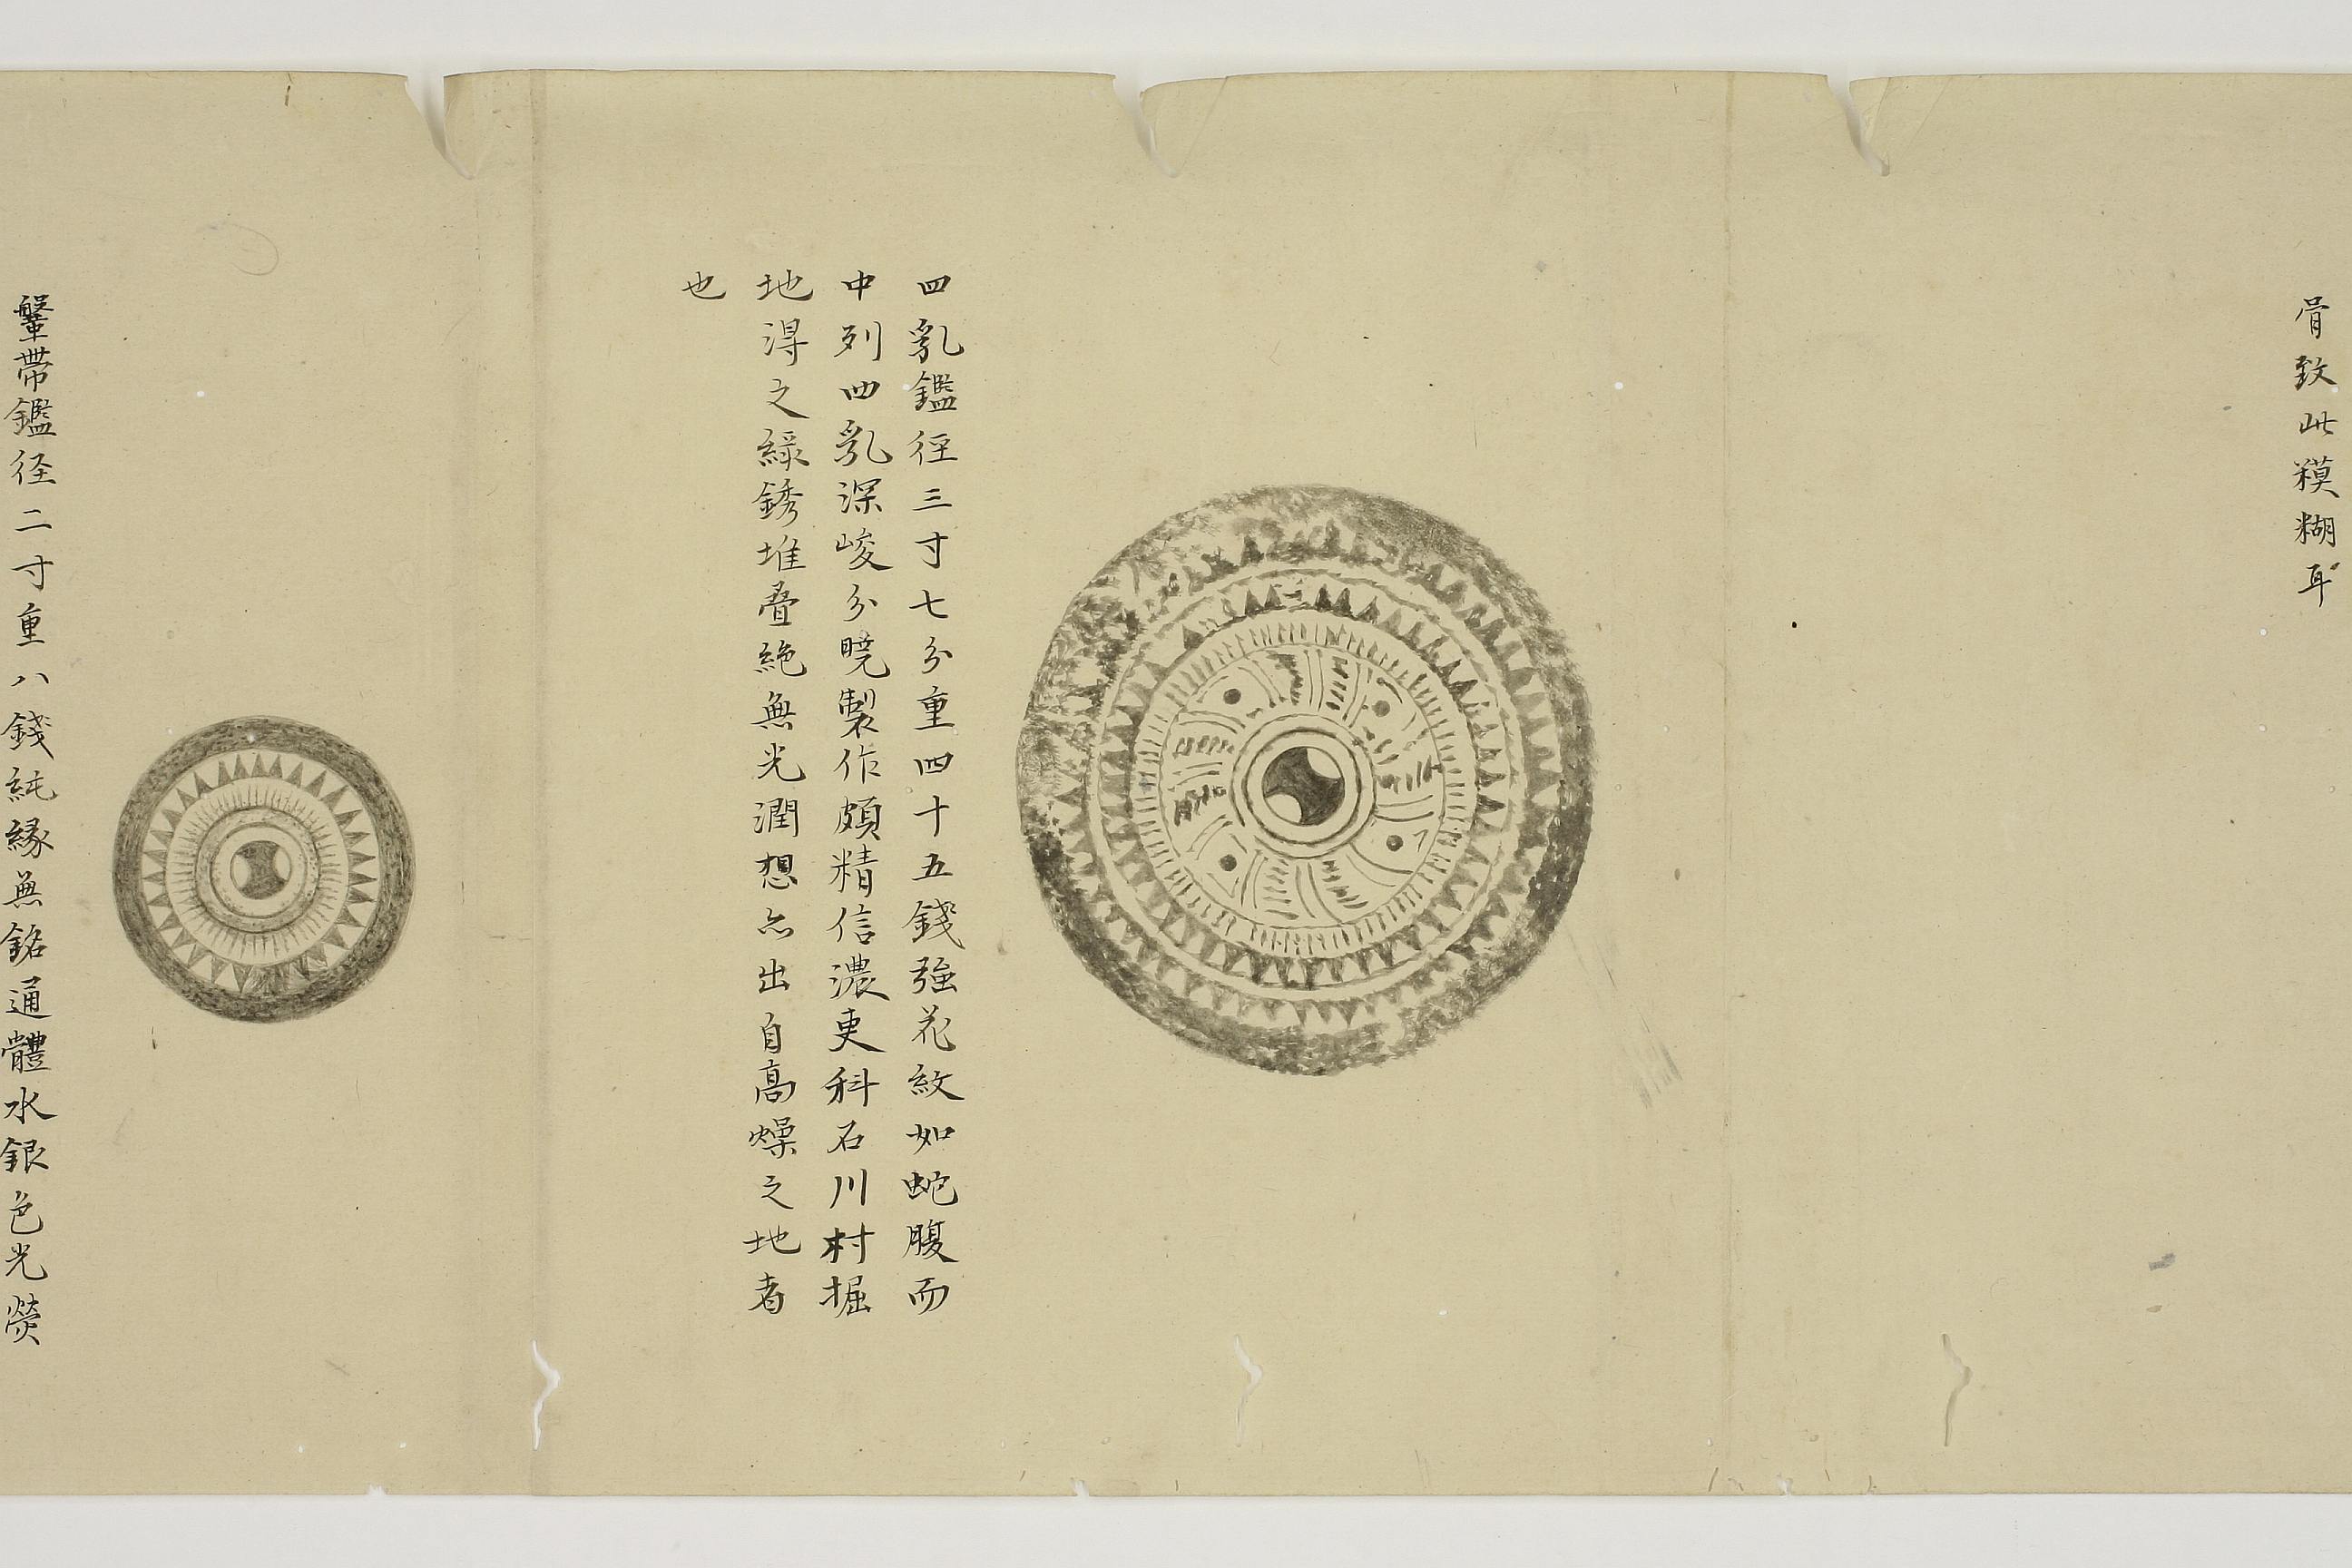 骨致此糢糊耳
四乳鑑徑三寸七分重四十五錢強花紋如蛇腹而
中列四乳深峻分曉製作頗精信濃更科石川村掘
地得之綠銹堆疊絶無光潤想亦出自高燥之地者
也
鞶帶鑑径二寸重八錢純緣無銘通體水銀色光熒